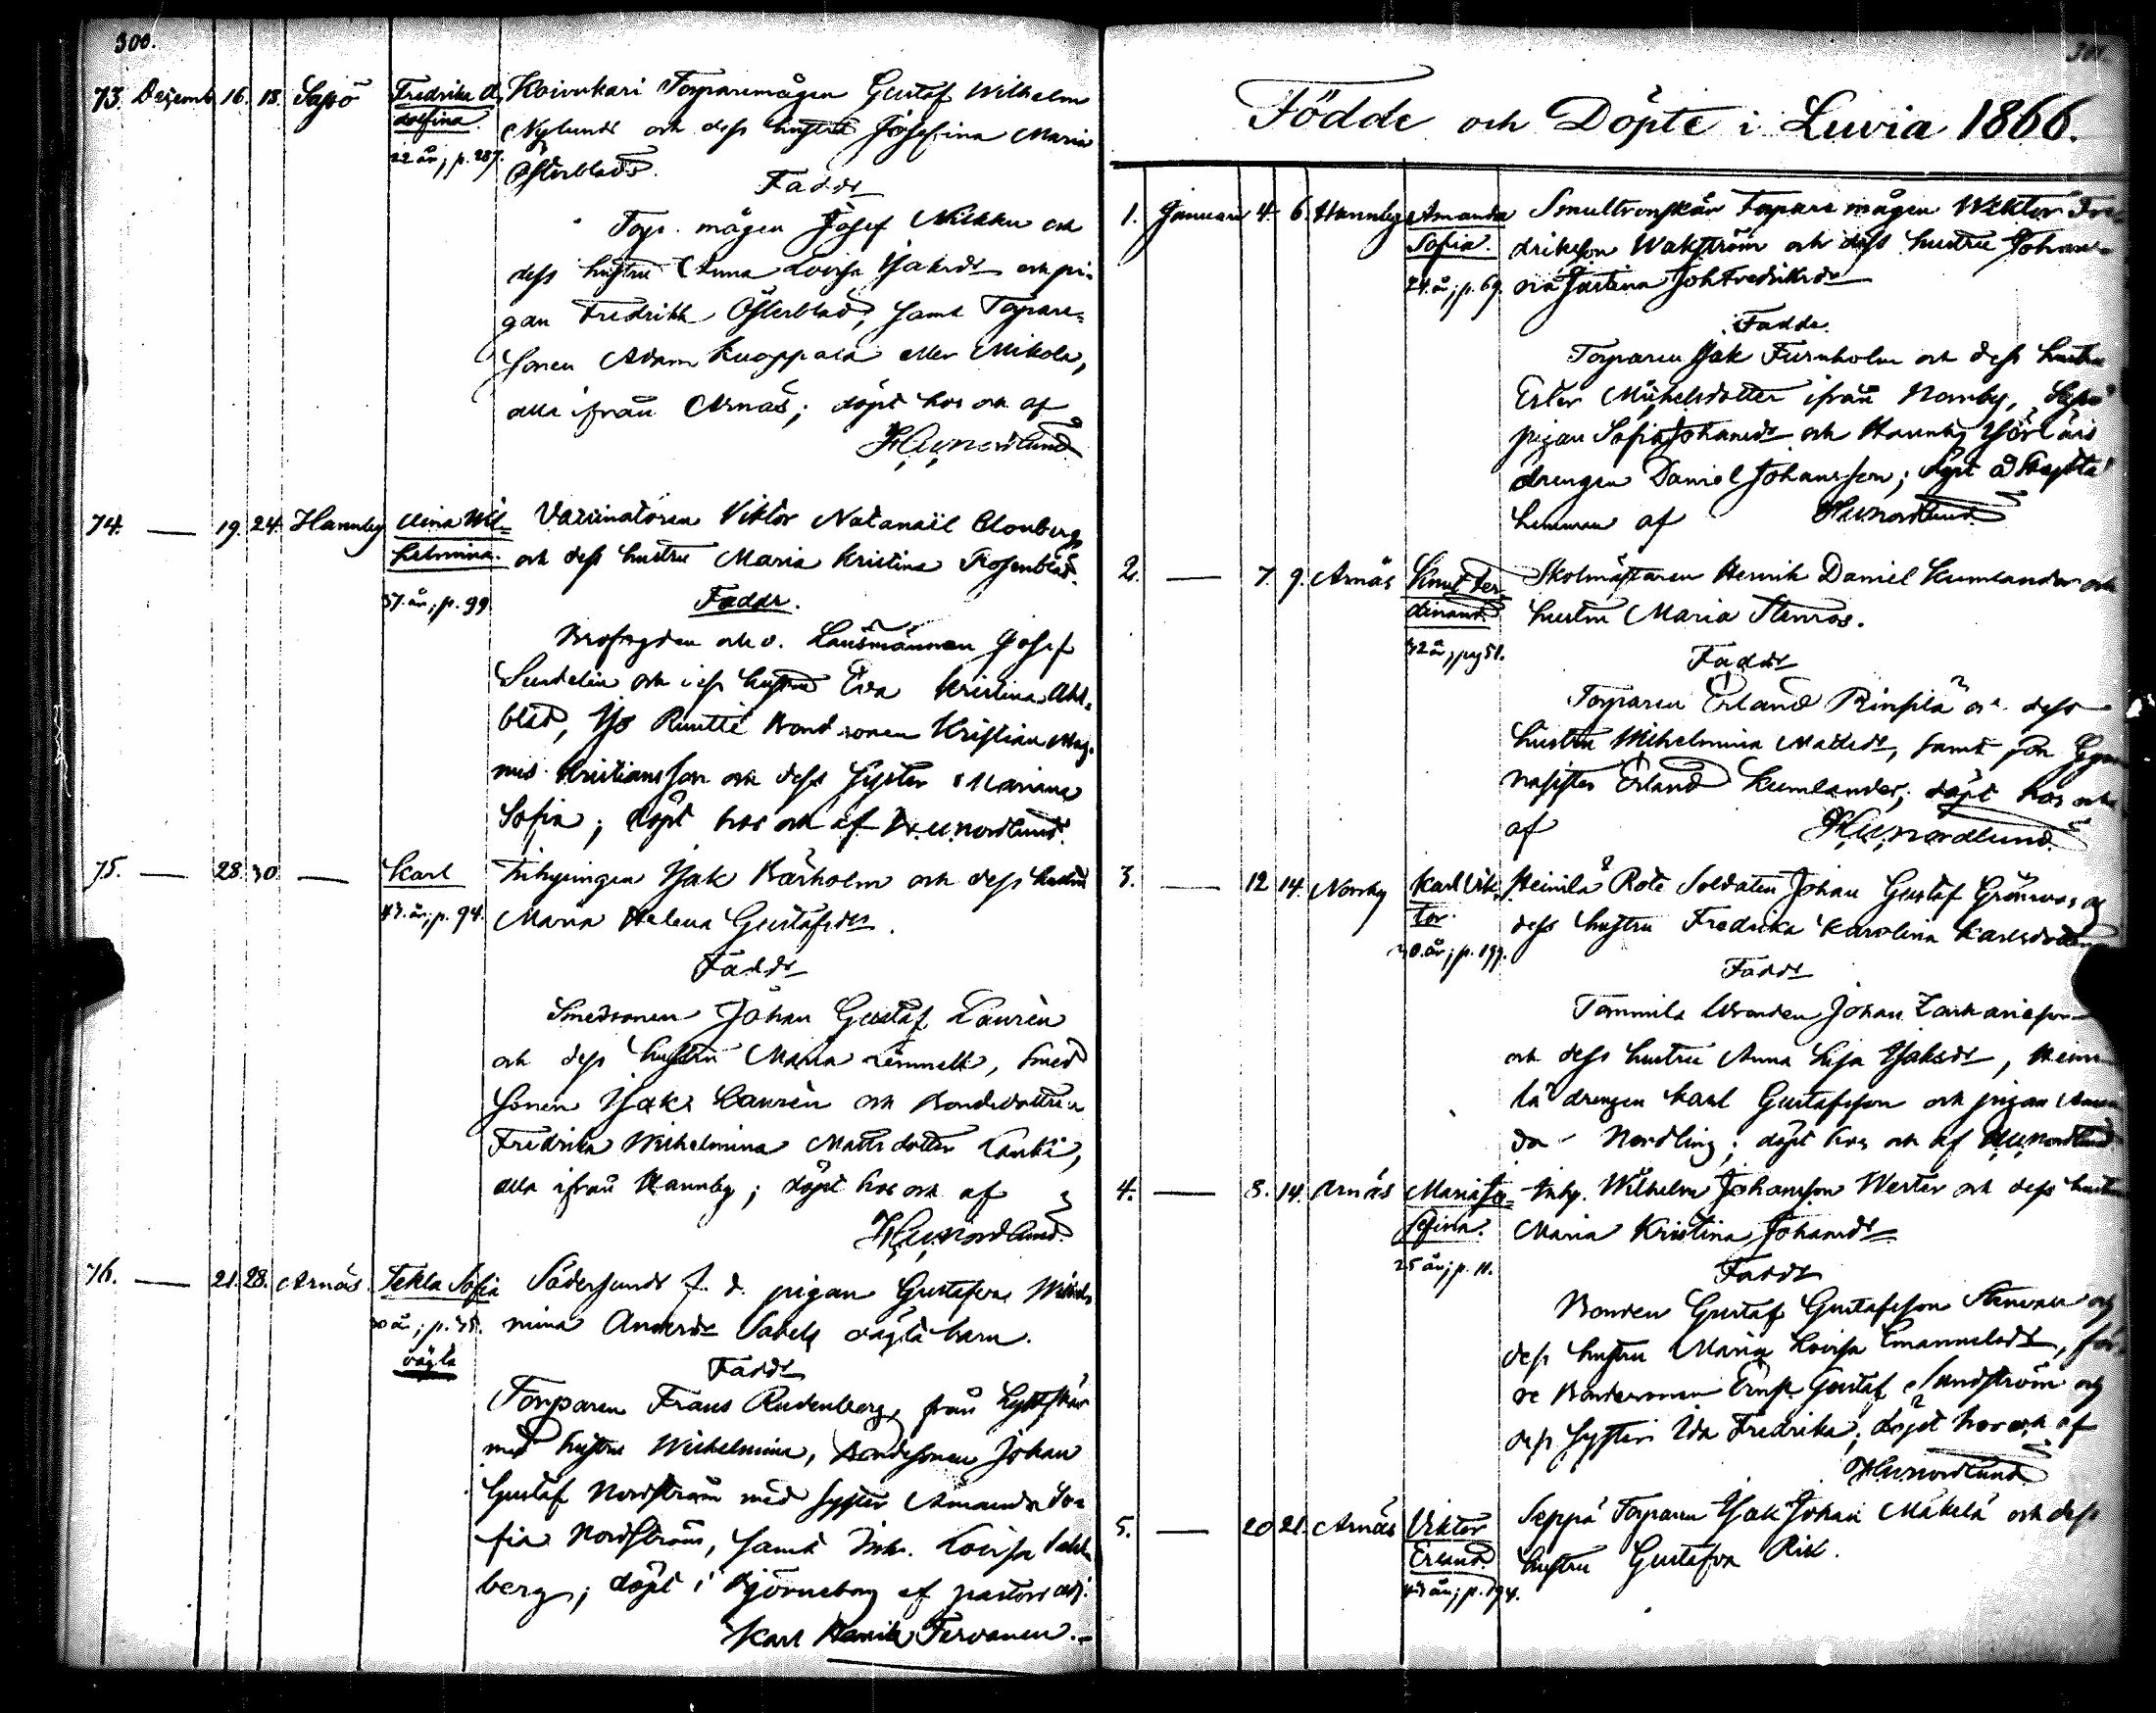 300.
73. Dezemb. 16. 18. Sassö Fredrika A-
dolfina.
22 år, p. 287.
Koivukari Torparemågen Gustaf Wilhelm
Nylund och dess hustru Josefina Maria
Österblad.
Faddr
Torp. mågen Josef Nikku och
dess hustru Anna Lovisa Isaksdr och pi-
gan Fredrika Österblad, samt Torpare-
sonen Adam Kuoppala eller Mikola,
alla ifrån Arnäs; döpt hos och af
H. U. Nordlund
74. — 19. 24. Hannby Alina Wil-
helmina.
37. år, p. 99.
Vaccinatören Viktor Natanaël Blomberg
och dess hustru Maria Kristina Rosenblad.
Faddr.
Brofogden och v. Länsmannen Josef
Sundelin och dess hustru Eva Kristina Ahl-
blad, Yso Ruutti Bondsonen Kristian Mag-
nus Kristiansson och dess syster Mariana
Sofia; döpt hos och af H. U. Nordlund.
75. — 28. 30 — Karl
43. år, p. 94.
Inhysingen Isak Bärholm och dess hustru
Maria Helena Gustafsdr.
Faddr
Smedsonen Johan Gustaf Laurèn
och dess hustru Maria Lemmelt, Smed
sonen Isak Laurèn och Bondedottren
Fredrika Wilhelmina Matts dotter Lanki,
alla ifrån Hannby; döpt hos och af
H. U. Nordlund.
76. — 21. 28. Arnäs Tekla Sofia
30 år, p. 35.
oägta
Södersunds f. d. pigan Gustafva Wilhel-
mina Andersdr Sabels oägta barn.
Faddr
Torparen Frans Rudenberg, från Lyttskär
med hustru Wilhelmina, Bondesonen Johan
Gustaf Nordström med syster Amanda So-
fia Nordström, samt Inh. Lovisa Sahl-
berg; döpt i Björneborg af pastors adj.
Karl Henrik Tervonen.
301.
Födde och Döpte i Luvia 1866.
1. Januari 4. 6. Hannby Amanda
Sofia.
24. år, p. 69.
Smultronskär Torpare mågen Wiktor Fre-
drikson Wakström och dess hustru Johan-
na Justina Joh Fredriksdr
Faddr.
Torparen Isak Furuholm och dess hustru
Ester Mickelsdotter ifrån Norrby,
pigan Sofia Johansdr och Hannby
drengen Daniel Johansson; döpt å
hemman af H. U. Nordlund
2. — 7. 9. Arnäs Knut Fer-
dinand.
32 år, pag 51.
Skolmästaren Henrik Daniel Kumlander och
hustru Maria Stenros.
Faddr
Torparen Erland och dess
hustru Wilhelmina Mattsdr, samt Gym-
nasisten Erland Kumlander; döpt hos och
af H. U. Nordlund.
3. — 12 14. Norrby Karl Vik-
tor.
30. år, p. 199.
Heinilä Rote Soldaten Johan Gustaf Grönroos och
dess hustru Fredrika Karolina Karlsdotter
Faddr
Tammila Bonden Johan Zachariesson
och dess hustru Anna Lisa Isaksdr, Heini-
lä drengen Karl Gustafsson och pigan Aman-
da Nordling; döpt hos och af H. U. Nordlund
4. — 8. 14. Arnäs Maria Jo-
sefina.
25 år, p. 11.
Inhy. Wilhelm Johansson Wester och dess hustru
Maria Kristina Johansdr
Faddr
Bonden Gustaf Gustafsson Stenvall och
dess hustru Maria Lovisa Emanuelsdr, för-
re Bondesonen Ernst Gustaf Sandström och
dess syster Ida Fredrika; döpt hos och af
H. U. Nordlund
5. — 20 21. Arnäs Viktor
Erland.
43 år, p. 194.
Seppä Torparen Isak Johan Mäkelä och dess
hustru Gustafva Rik.